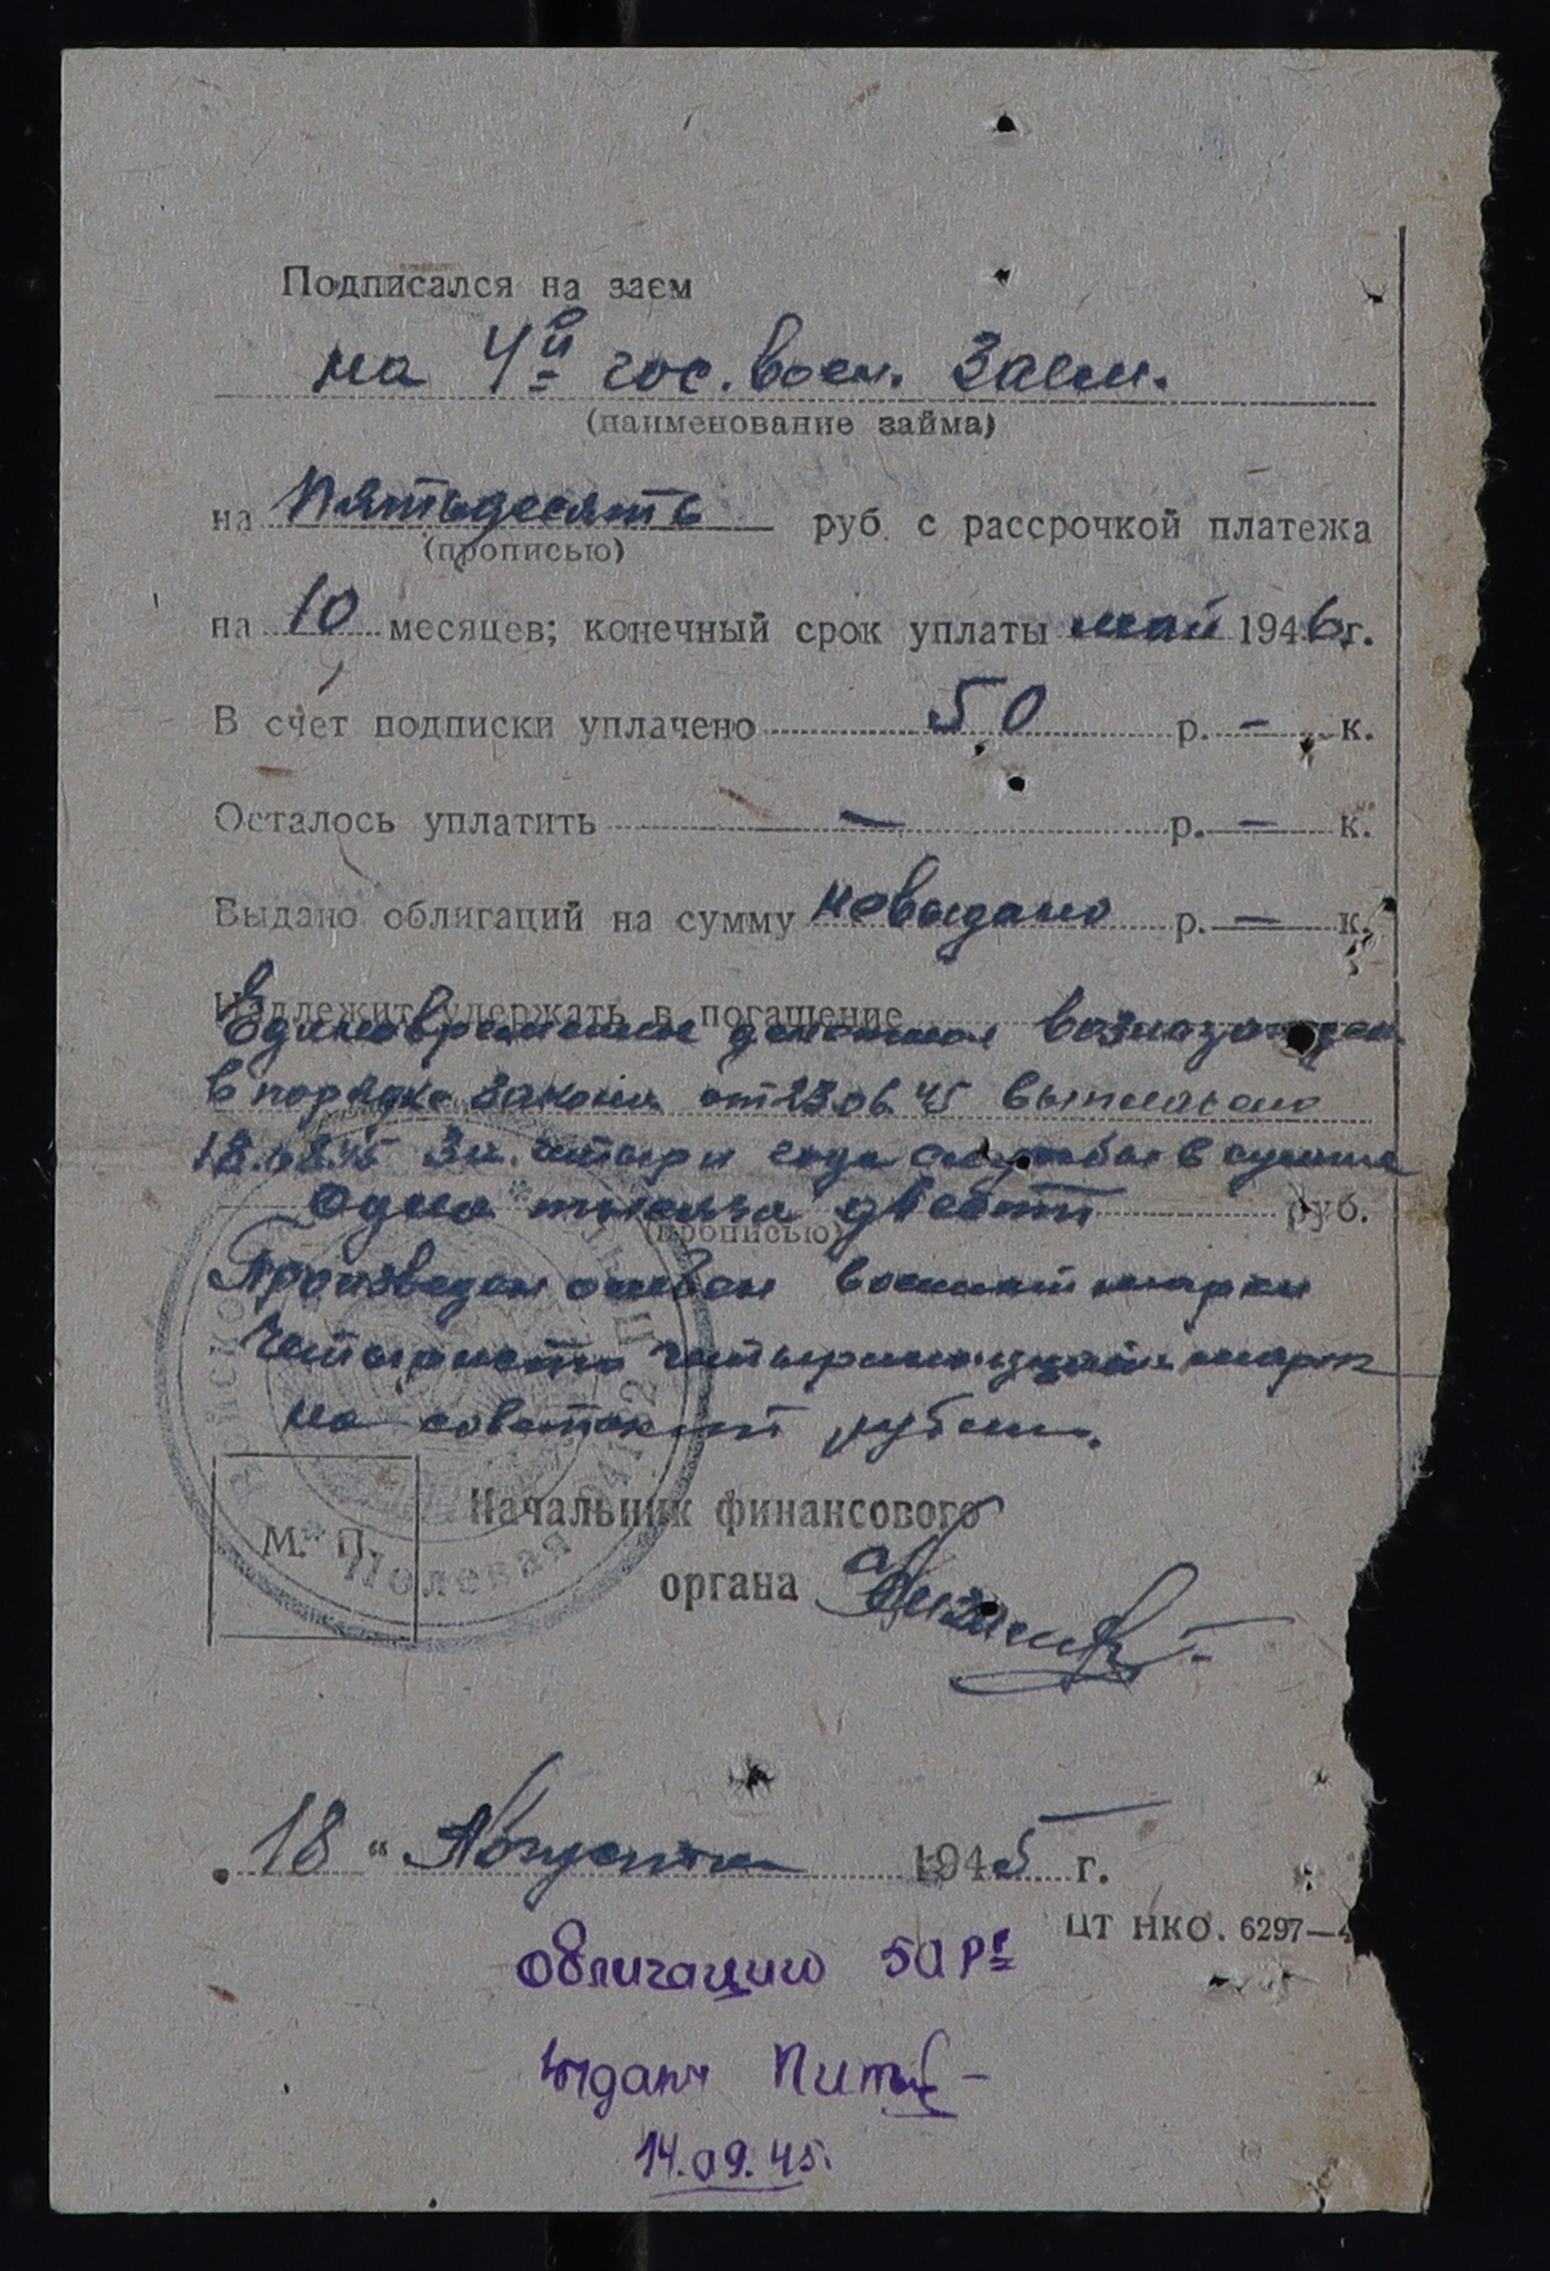 Подписался на заем
на 4й гос. воен. заем.
(наименование займа)
на Пятьдесять руб. с рассрочкой платежа
(прописью)
на 10 месяцев; конечный срок уплаты май 1946 г.
В счет подписки уплачено 50 р. — к.
Осталось уплатить — р. — к.
Выдано облигаций на сумму невыдано р. — к.
Надлежит удержать в погашение
Единовременное денежное вознагражден.
в порядке закона от 23.06.45 выплачено
18.08.45 За четыри года службы в сумме
одна тысяча двести руб.
(прописью)
Произведен обмен военной марки
Четыреста четырнадцать марок
на советский рубли.
Начальник финансового
М. П.
органа
Полевая
18 " Августа 1945 г.
ЦТ НКО. 6297—4
Облигацию 50 Р
выдал
14.09.45.